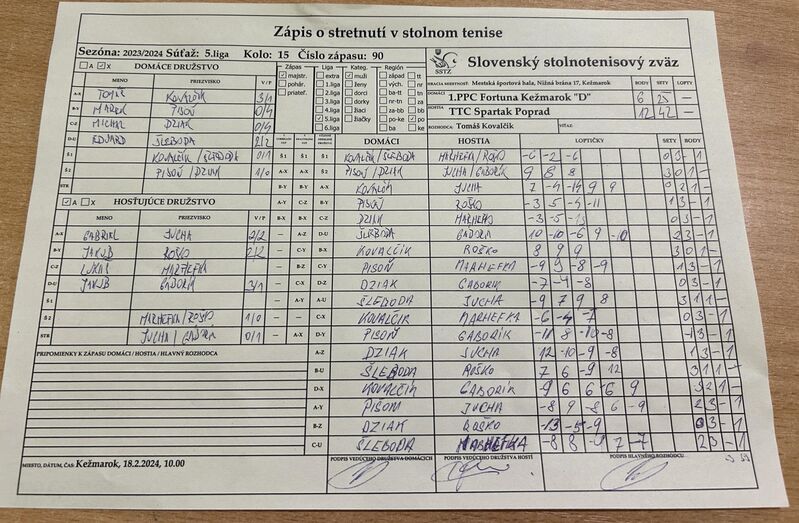 Zápis o stretnutí v stolnom tenise
Sezóna: 2023/2024 Súťaž: 5.liga Kolo: 15 Číslo zápasu: 90
A X DOMÁCE DRUŽSTVO
Zápas Liga Kateg. Región
majstr. extra muži západ tt
pohár. 1.liga ženy
priateľ. 2.liga dorci
3.liga dorky
4.liga žiaci
5.liga žiačky
6.liga
SSTZ
Slovenský stolnotenisový zväz
HRACIA MIESTNOSŤ: Mestská športová hala, Nižná brána 17, Kežmarok BODY SETY LOPTY
DOMÁCI 1.PPC Fortuna Kežmarok "D" 6 25 —
HOSTIA TTC Spartak Poprad 12 42 —
ROZHODCA: Tomáš Kovalčík VÍŤAZ:
MENO PRIEZVISKO V / P
A-X TOMÁŠ KOVALČÍK 3/1
B-Y MAREK PISOŇ 0/4
C-Z MICHAL DZIAK 0/4
D-U EDUARD ŠLEBODA 2/2
Š1 KOVALČÍK/ŠLEBODA 0/1
Š2 PISOŇ/DZIAK 1/0
STR
A X HOSŤUJÚCE DRUŽSTVO
MENO PRIEZVISKO V / P
A-X GABRIEL JUCHA 2/2
B-Y JAKUB ROŠKO 2/2
C-Z LUKÁŠ MARHEFKA
D-U JAKUB GABORÍK 3/1
Š1
Š2 MARHEFKA/ROŠKO 1/0
STR JUCHA/GABORÍK 0/1
PRIPOMIENKY K ZÁPASU DOMÁCI / HOSTIA / HLAVNÝ ROZHODCA
DOMÁCI HOSTIA LOPTIČKY SETY BODY
Š1 KOVALČÍK/ŠLEBODA MARHEFKA/ROŠKO -6 -2 -6 0 3 - 1
PISOŇ/DZIAK JUCHA/GABORÍK 9 8 8 3 0 1 -
KOVALČÍK JUCHA
PISOŇ ROŠKO -3 5 -4 -11 1 3 - 1
DZIAK MARHEFKA
ŠLEBODA GABORÍK 10 -10 -6 9 -10 2 3 - 1
KOVALČÍK ROŠKO 8 9 9 3 0 1 -
PISOŇ MARHEFKA -9 9 -8 -9 1 3 - 1
DZIAK GABORÍK -7 -4 -8 0 3 - 1
ŠLEBODA JUCHA -9 7 9 8 3 1 1 -
C-X KOVALČÍK MARHEFKA -6 -4 -7 0 3 - 1
D-Y PISOŇ GABORÍK -11 8 -10 -8 1 3 - 1
A-Z DZIAK JUCHA 12 -10 -9 -8 1 3 - 1
B-U ŠLEBODA ROŠKO 7 6 -9 12 3 1 1 -
D-X KOVALČÍK GABORÍK -9 6 6 -6 9 3 2 1 -
A-Y PISOŇ JUCHA -8 9 -8 6 -9 2 3 - 1
B-Z DZIAK ROŠKO -13 -5 -9 0 3 - 1
C-U ŠLEBODA MARHEFKA 2 3 - 1
MIESTO, DÁTUM, ČAS: Kežmarok, 18.2.2024, 10.00
PODPIS VEDÚCEHO DRUŽSTVA DOMÁCICH
PODPIS VEDÚCEHO DRUŽSTVA HOSTÍ
PODPIS HLAVNÉHO ROZHODCU